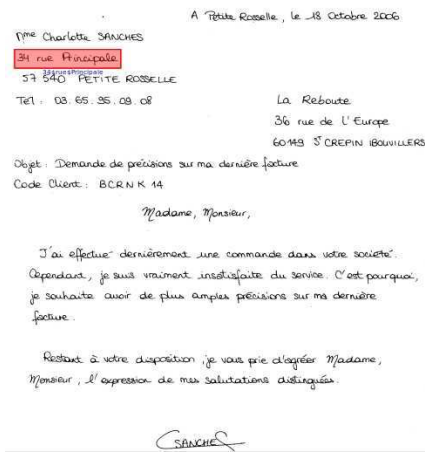 A Petite Rosselle, le 18 Octobre 2006
Mme Charlotte SANCHES
34 rue Principale
57 540 PETITE ROSSELLE
Tel : 03. 65. 95. 09. 08
La Reboute
36 rue de L'Europe
60149 St CREPIN IBOUVILLERS
Objet : Demande de précisions sur ma dernière facture
Code Client : BCRNK 14
Madame, Monsieur,
J'ai effectué dernièrement une commande dans votre societé.
Cependant, je suis vraiment insatisfaite du service. C'est pourquoi,
je souhaite avoir de plus amples précisions sur ma dernière
facture.
Restant à votre disposition je vous prie d'agréer Madame,
Monsieur, l'expression de mes salutations distinguées.
SANCHES